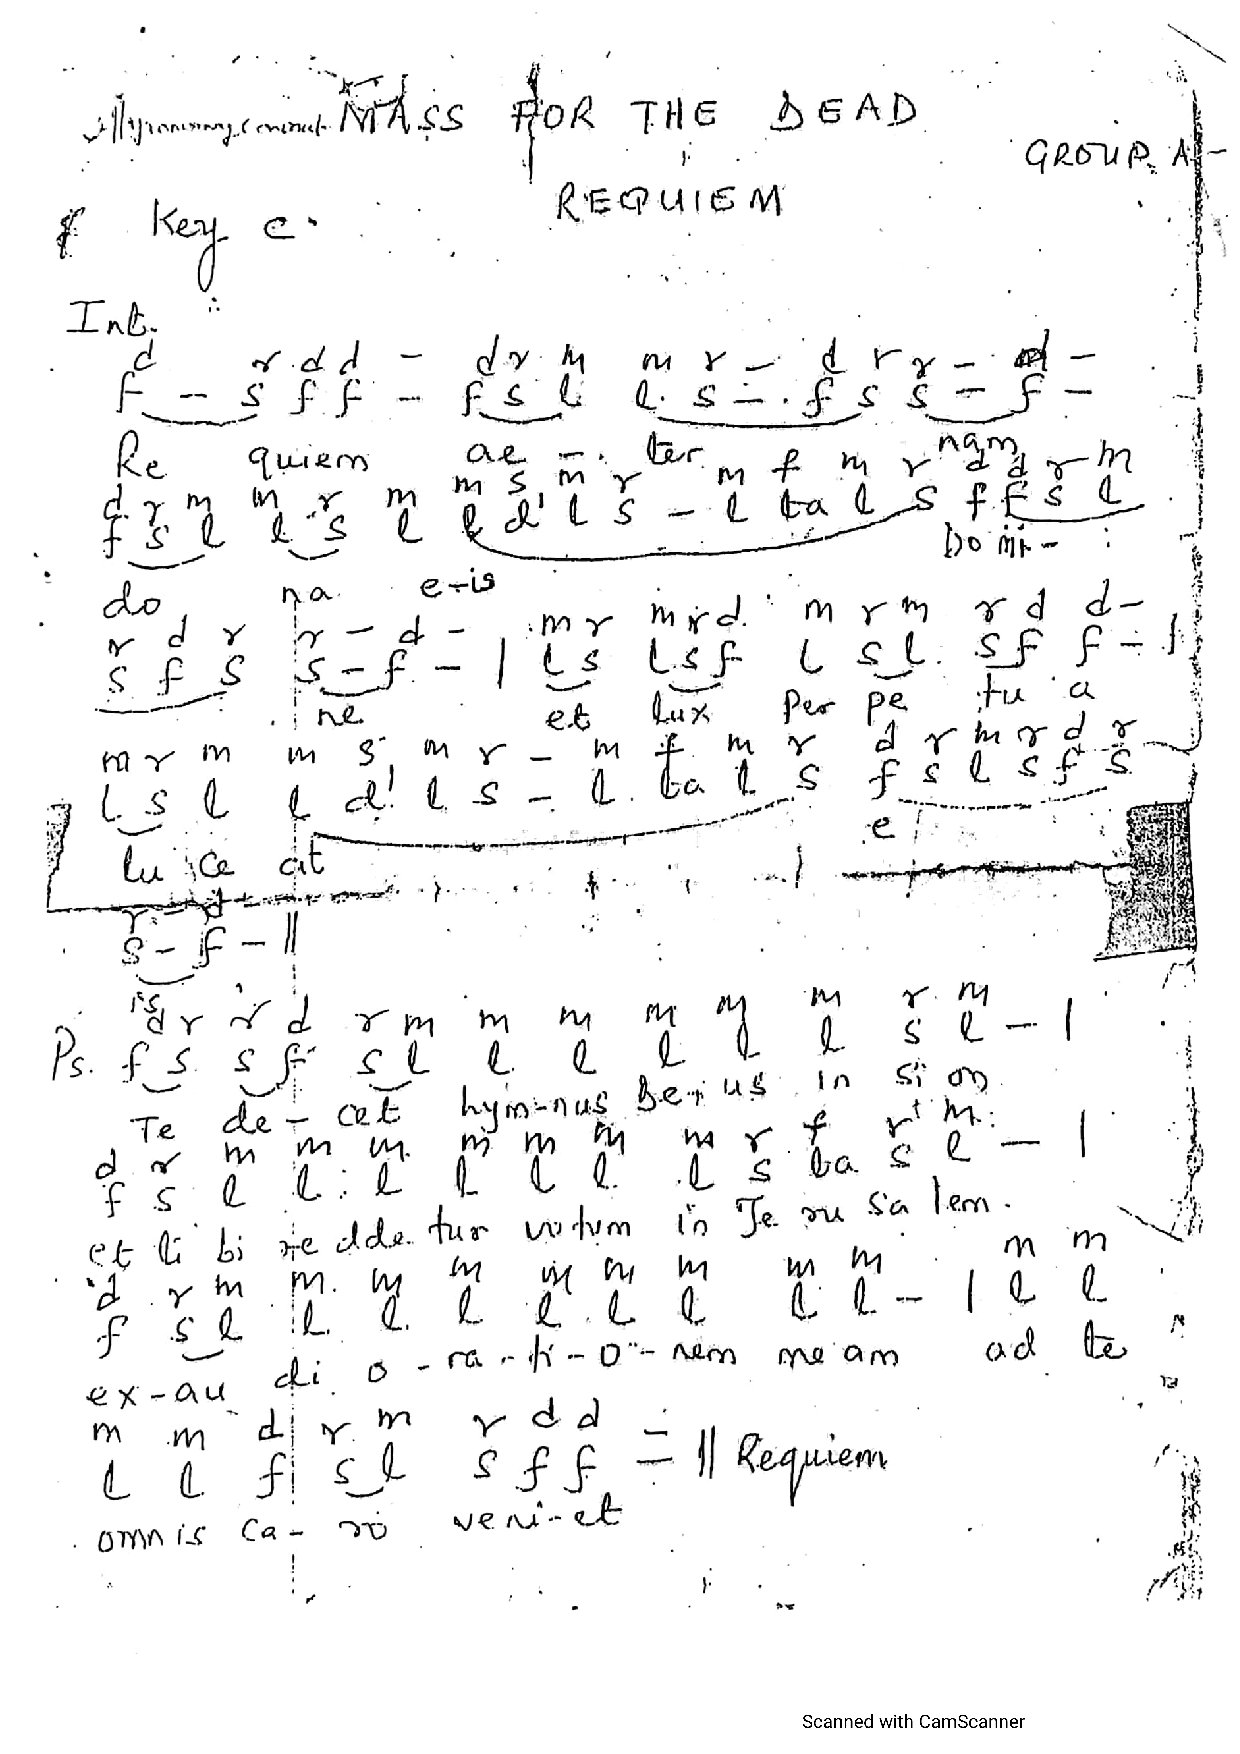 MASS FOR THE DEAD
GROUP. A -
REQUIEM
Key C.
Int.
d r d d - d r m m r - d r r - d -
f - s f f - f s l l. s - . f s s - f -
Re quiem ae - . ter nam
d r m m r m m s m r m f m r d d r m
f s l l s l l d' l s - l ta l s f f s l
do na e-is Domi-
r d r r - d - m r m r d m r m r d d -
s f s s - f - | l s l s f l s l. s f f - |
ne et lux per pe tu a
m r m m s m r - m f m r d r m r d r
l s l l d' l s - l. ta l s f s l s f s
lu ce at e
r - d -
s - f - ||
is
d r r d r m m m m m m r m
Ps. f s s f s l l l l l l s l - |
Te de - cet hym-nus De-us in si on
d r m m m m m m m r f r m
f s l l. l l l l. l s ta s l - |
et ti bi re dde tur votum in Je ru sa lem.
d r m m. m m m m m m m m m
f s l l. l. l l l l l l - | l l
ex-au di o - ra - ti - o - nem me am ad te
m m d r m r d d
l l f s l s f f = || Requiem
omnis ca - ro veni-et
Scanned with CamScanner